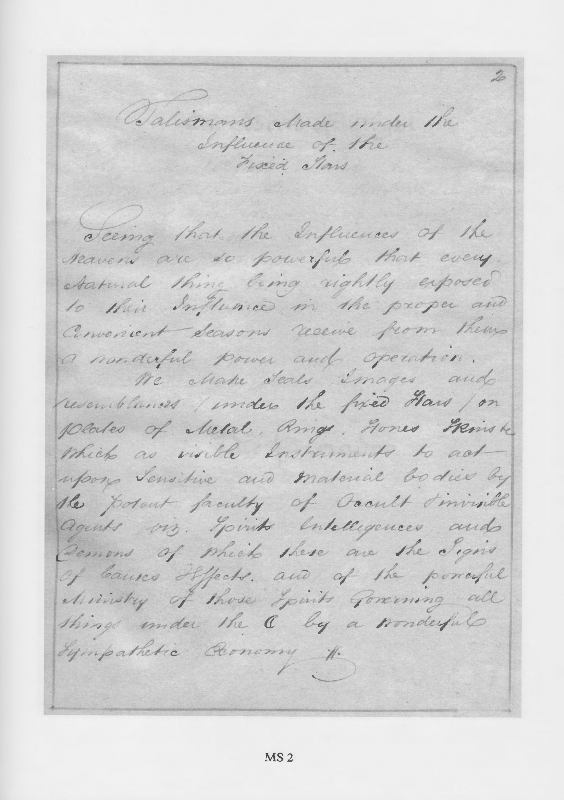 2
Talismans Made under the
Influence of the
Fixed Stars
Seeing that the Influences of the
Heavens are so powerful that every
Natural thing being rightly exposed
to their Influence in the proper and
Convenient Seasons receive from them
a wonderful power and operation.
We Make Seals Images and
resemblances / under the fixed Stars / on
plates of Metal, Rings, Stones Skins &c
which as visible Instruments to act
upon Sensitive and Material bodies by
the potent faculty of Occult & invisible
Agents viz. Spirits Intelligences and
Demons of which these are the Signs
of Causes Effects. and of the powerful
Ministry of those Spirits Governing all
things under the ☾ by a wonderful
Sympathetic Œconomy
MS 2